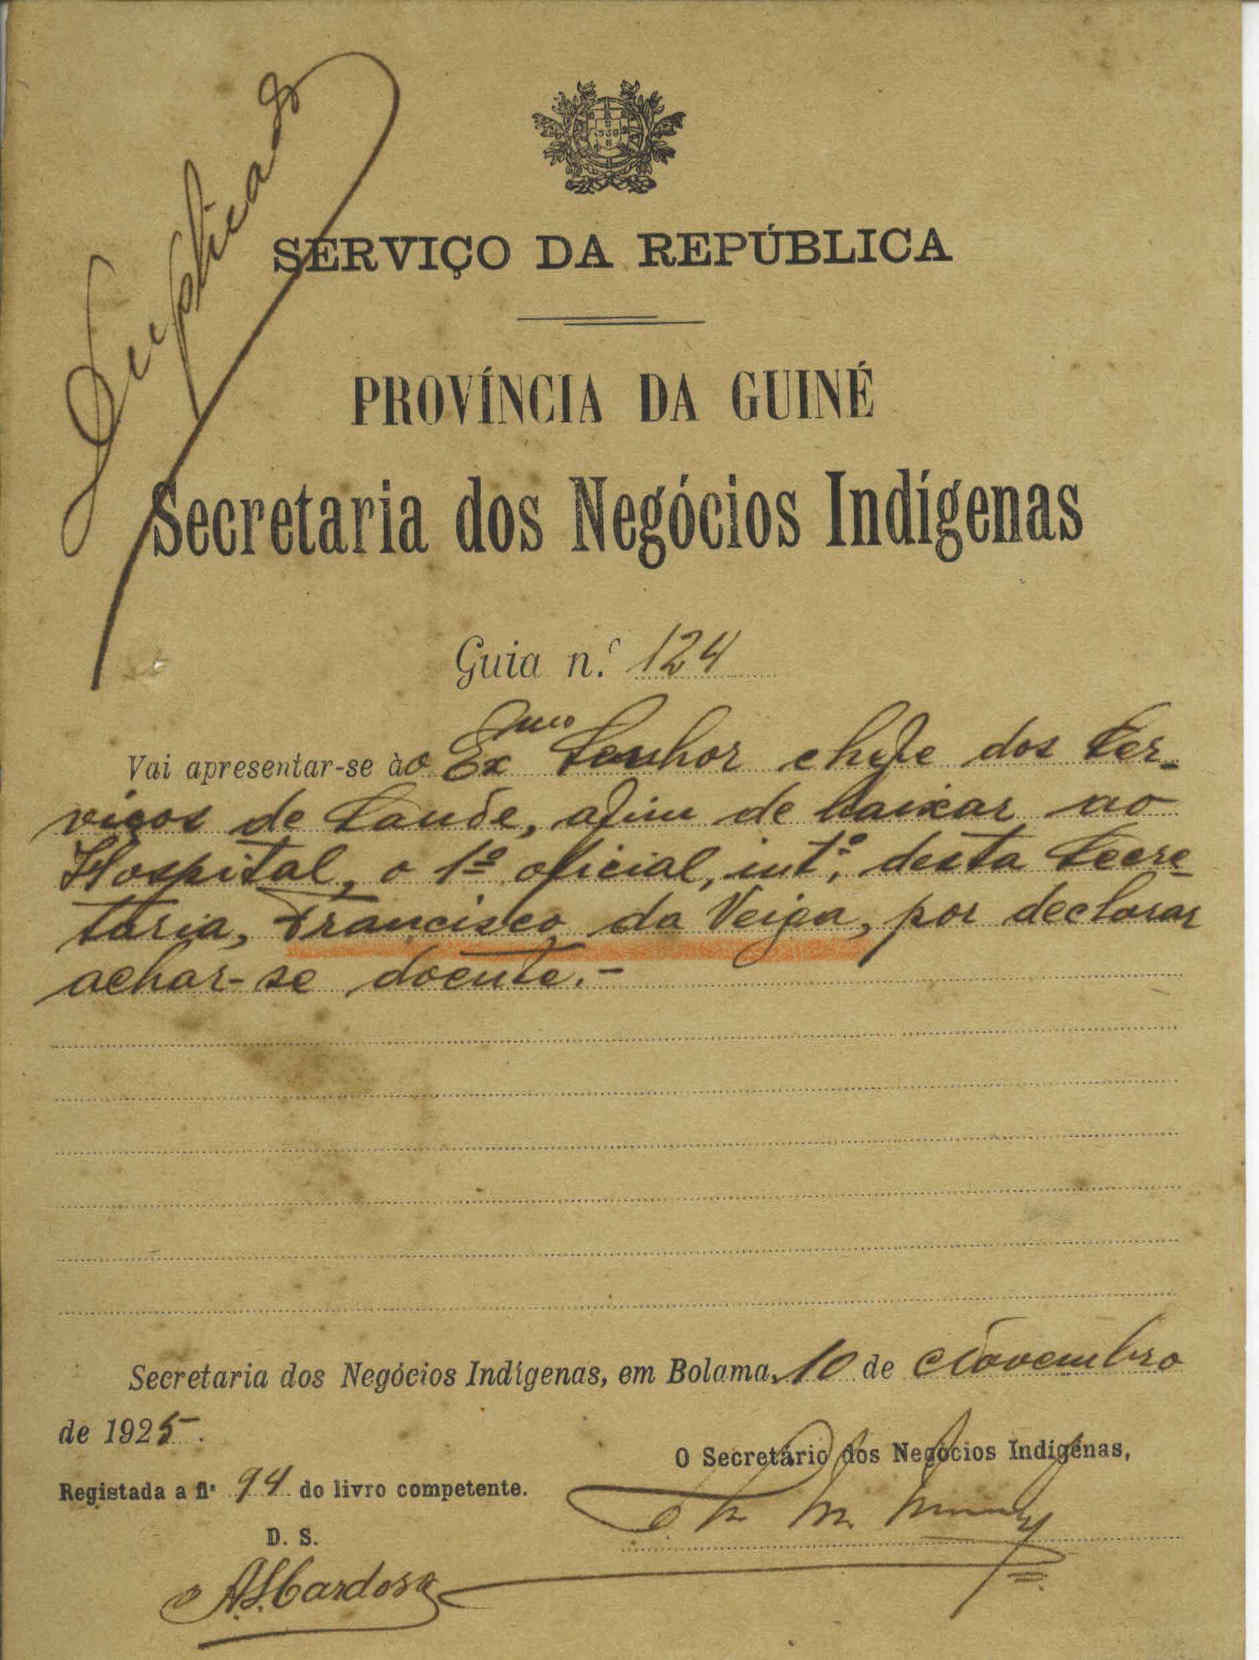 Duplicado
SERVIÇO DA REPÚBLICA
PROVÍNCIA DA GUINÉ
Secretaria dos Negócios Indígenas
Guia n.º 124
Vai apresentar-se ào Exmo Senhor chefe dos Ser-
viços de Saude, afim de baixar ao
Hospital, o 1º oficial, intº, desta Secre-
taria, Francisco da Veiga, por declarar
achar-se doente.-
Secretaria dos Negócios Indígenas, em Bolama, 10 de Novembro
de 1925.
O Secretário dos Negócios Indígenas,
Registada a fl. 94 do livro competente.
D. S.
A.S.Cardoso